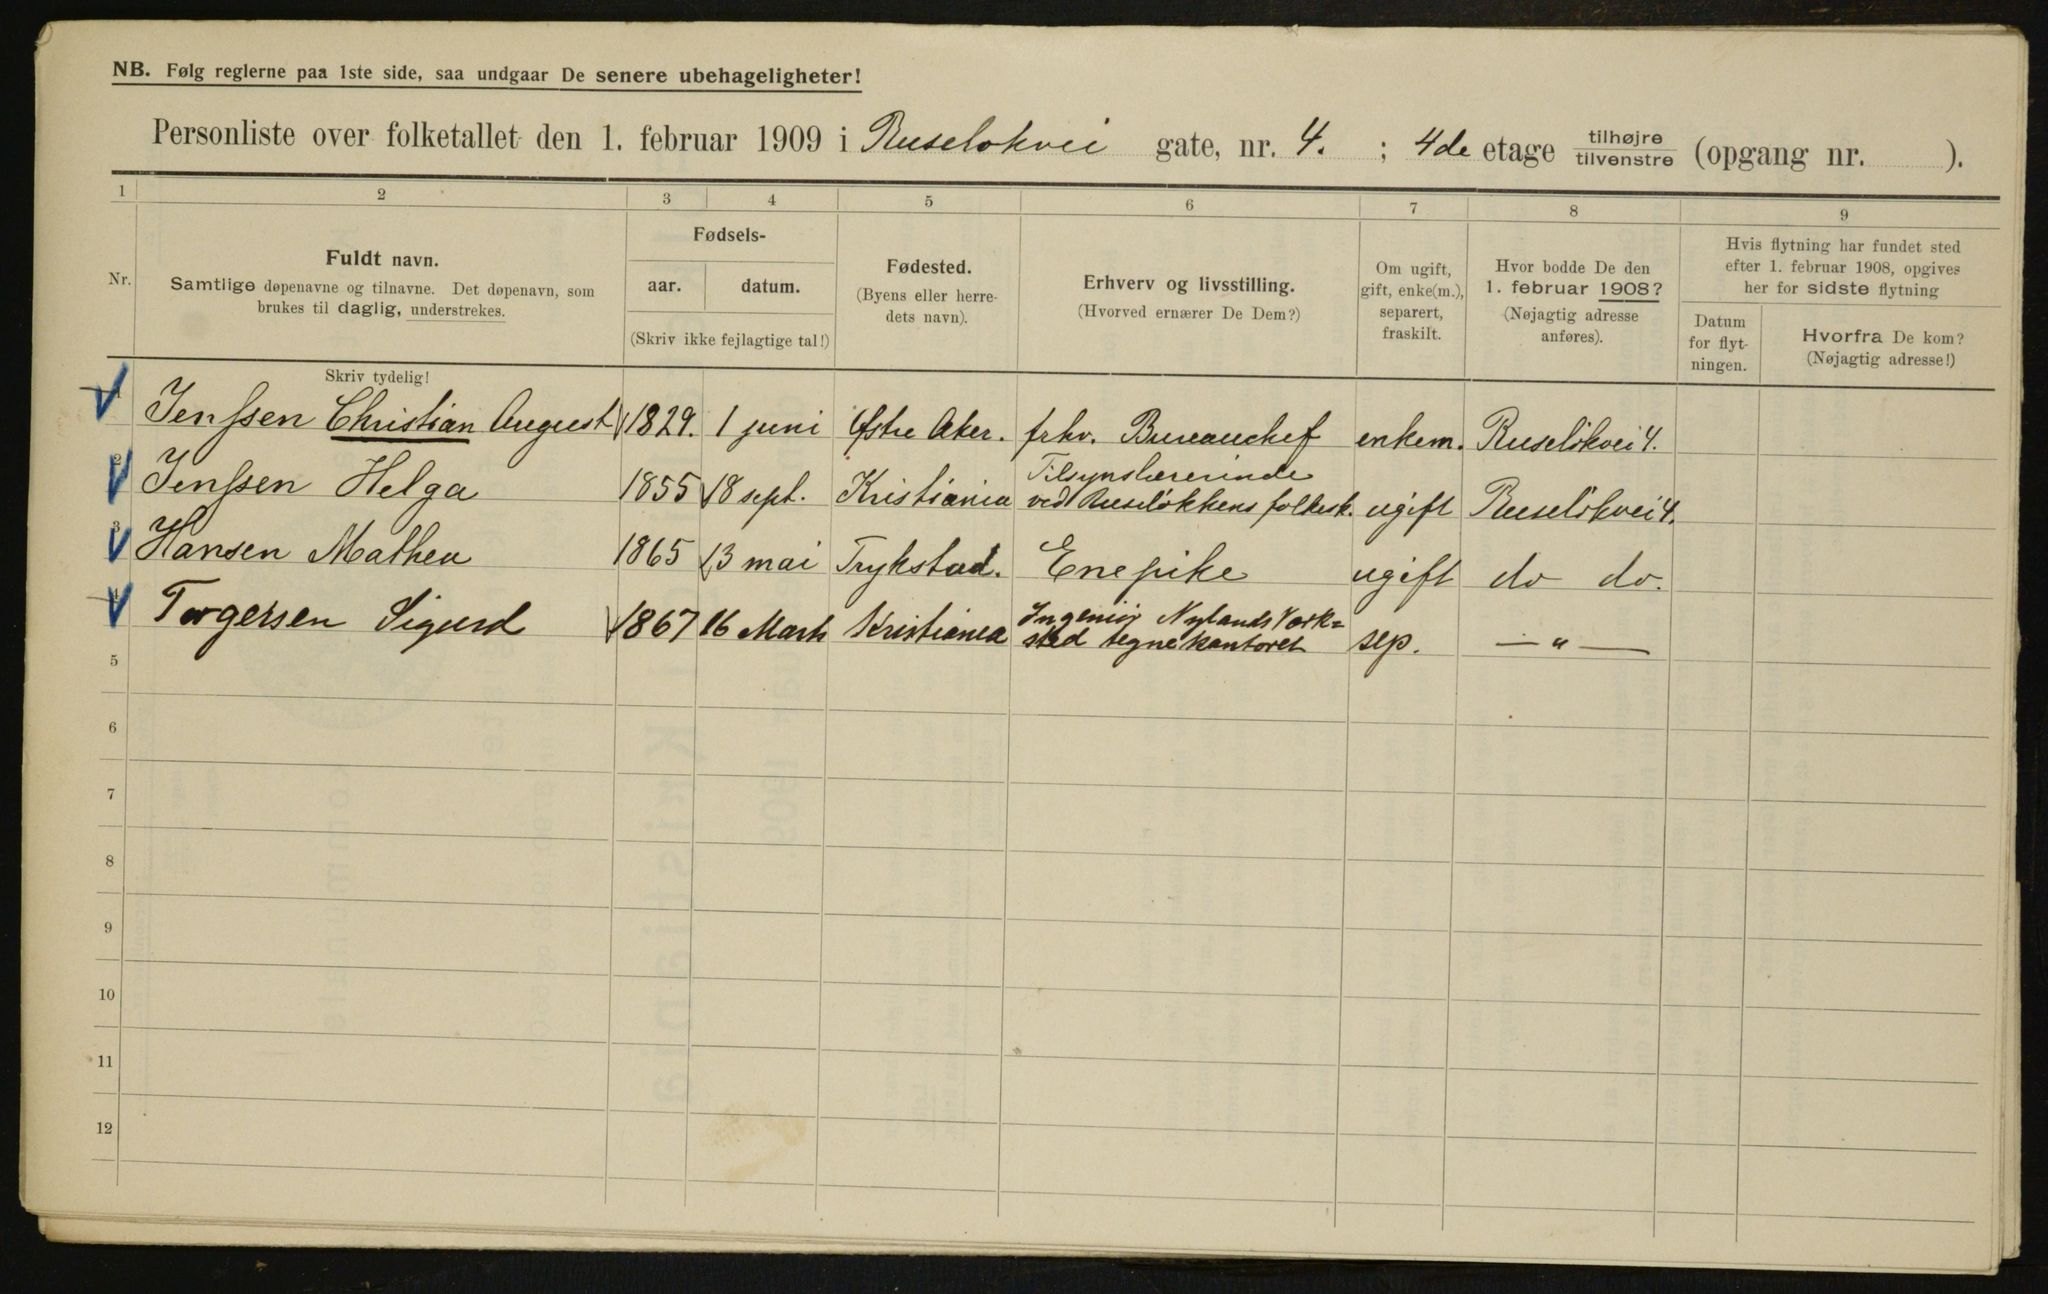 NB. Følg reglerne paa 1ste side, saa undgaar De senere ubehageligheter!
Personliste over folketallet den 1. februar 1909 i Ruseløkvei gate, nr. 4. ; 4de etage tilhøjre tilvenstre (opgang nr. ).
1 2 3 4 5 6 7 8 9
Nr.
Fuldt navn.
Samtlige døpenavne og tilnavne. Det døpenavn, som
brukes til daglig, understrekes.
Skriv tydelig!
Fødsels-
aar. datum.
(Skriv ikke fejlagtige tal!)
Fødested.
(Byens eller herre-
dets navn).
Erhverv og livsstilling.
(Hvorved ernærer De Dem?)
Om ugift,
gift, enke(m.),
separert,
fraskilt.
Hvor bodde De den
1. februar 1908?
(Nøjagtig adresse
anføres).
Hvis flytning har fundet sted
efter 1. februar 1908, opgives
her for sidste flytning
Datum
for flyt-
ningen.
Hvorfra De kom?
(Nøjagtig adresse!)
Jenssen Christian August 1829. 1 juni Østre Aker. frhv. Bureauchef enkem. Ruseløkvei 4.
2 Jenssen Helga 1855 18 sept. Kristiania Tilsynslærerinde
ved Ruseløkkens folkesk. ugift Ruseløkvei 4.
3 Hansen Mathea 1865 13 mai Trykstad. Enepike ugift do do.
4 Torgersen Sigurd 1867 16 Marts Kristiania Ingeniør Nylands Værk=
sted tegnekontoret sep. — " —
5
6
7
8
9
10
11
12